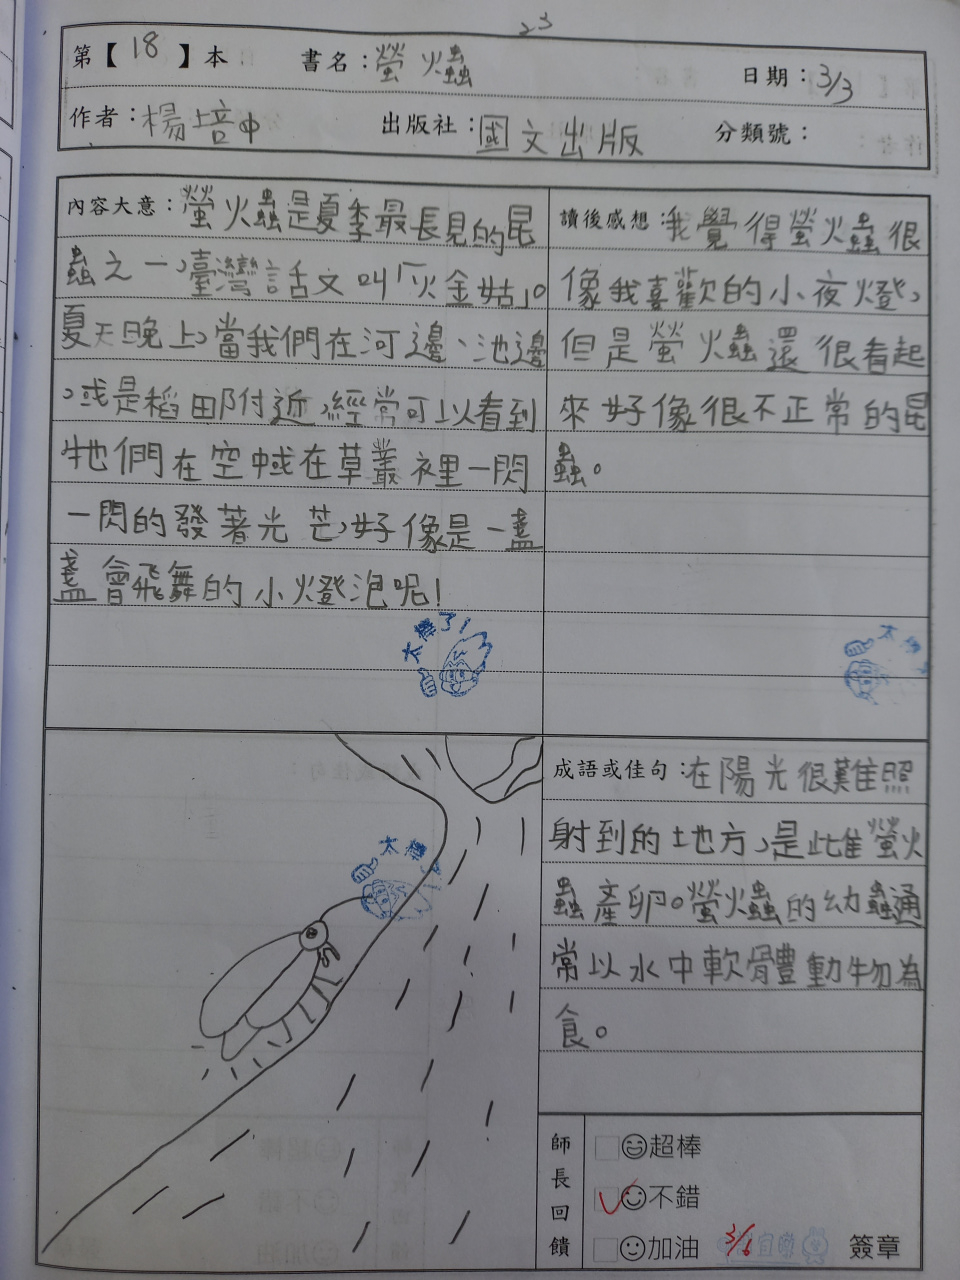 23
第【18】本 書名：螢火蟲 日期：3/3
作者：楊培中 出版社：國文出版 分類號：
內容大意：螢火蟲是夏季最長見的昆
蟲之一，臺灣話文叫「火金姑」。
夏天晚上，當我們在河邊、池邊
，或是稻田附近，經常可以看到
牠們在空中或在草叢裡一閃
一閃的發著光芒，好像是一盞
盞會飛舞的小燈泡呢！
太棒了！
讀後感想：我覺得螢火蟲很
像我喜歡的小夜燈，
但是螢火蟲還很看起
來好像很不正常的昆
蟲。
太棒
太棒
成語或佳句：在陽光很難照
射到的地方，是雌螢火
蟲產卵。螢火蟲的幼蟲通
常以水中軟體動物為
食。
師長回饋
超棒
不錯
加油 3/6 簽章